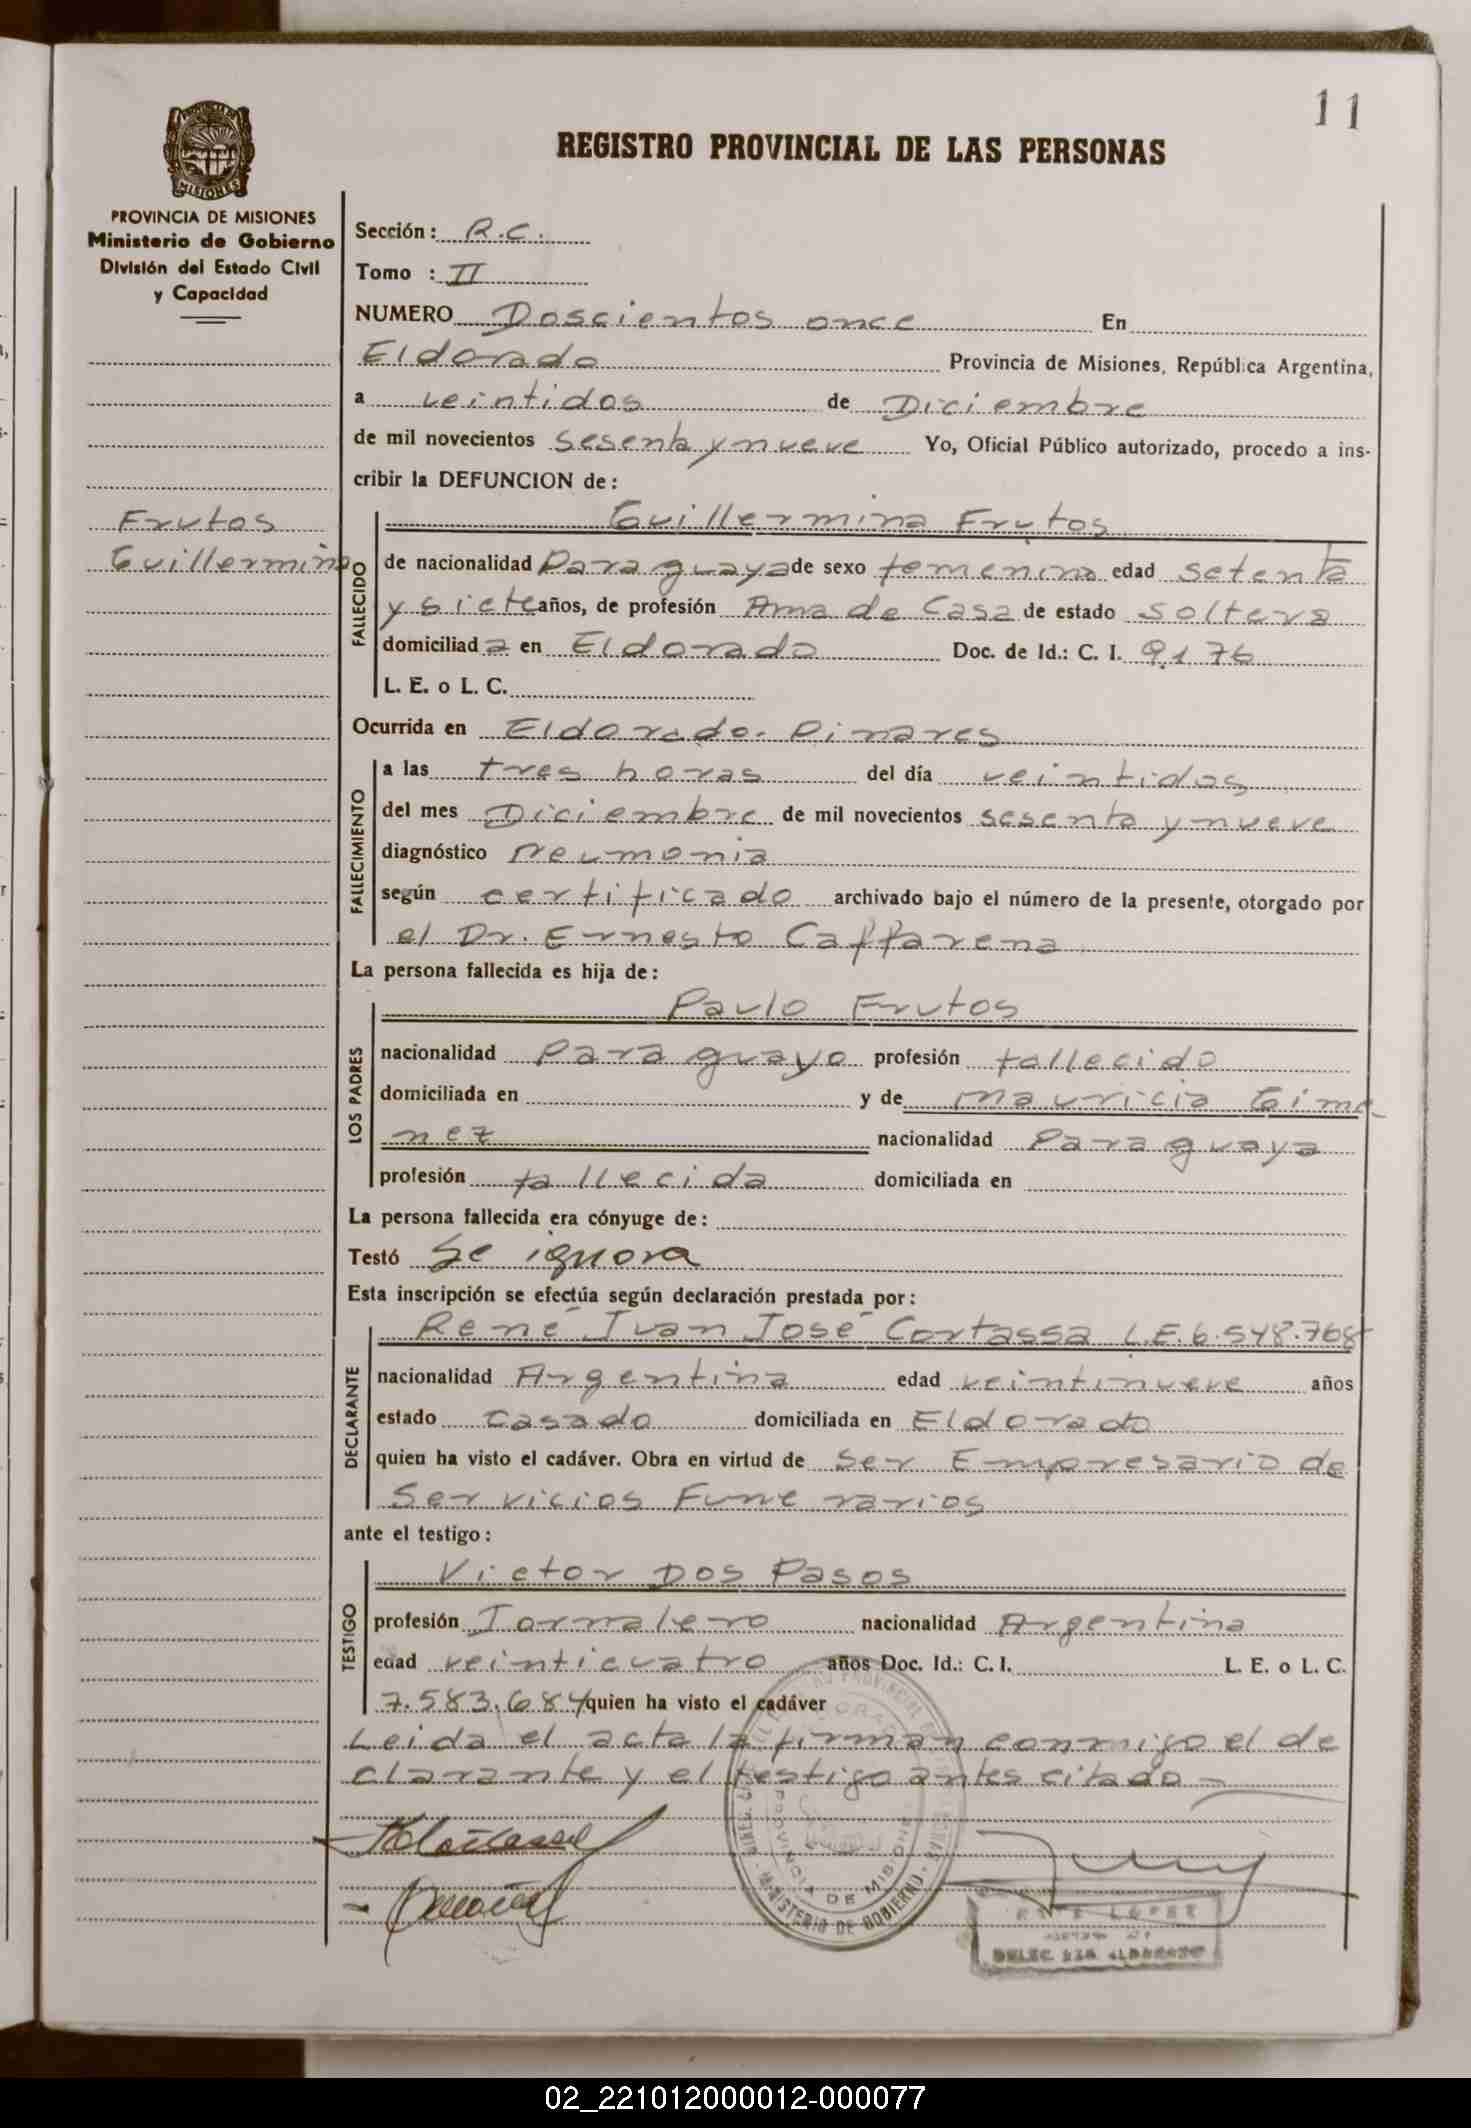 11
REGISTRO PROVINCIAL DE LAS PERSONAS
MISIONES
PROVINCIA DE MISIONES
Ministerio de Gobierno
División del Estado Civil
y Capacidad
Frutos
Guillermina
Sección: R.C.
Tomo : II
NUMERO Doscientos once En
Eldorado Provincia de Misiones, República Argentina,
a veintidos de Diciembre
de mil novecientos sesenta y nueve Yo, Oficial Público autorizado, procedo a ins-
cribir la DEFUNCION de:
Guillermina Frutos
FALLECIDO
de nacionalidad Paraguaya de sexo femenino edad setenta
y siete años, de profesión Ama de Casa de estado soltera
domiciliada en Eldorado Doc. de Id.: C. I. 9.176
L. E. o L. C.
Ocurrida en Eldorado. Pinares
FALLECIMIENTO
a las tres horas del día veintidos
del mes Diciembre de mil novecientos sesenta y nueve
diagnóstico Neumonia
según certificado archivado bajo el número de la presente, otorgado por
el Dr. Ernesto Caffarena
La persona fallecida es hija de:
Paulo Frutos
LOS PADRES
nacionalidad Paraguayo profesión fallecido
domiciliada en y de Mauricia Gime
nez nacionalidad Paraguaya
profesión fallecida domiciliada en
La persona fallecida era cónyuge de:
Testó Se ignora
Esta inscripción se efectúa según declaración prestada por:
René Ivan José Cortassa L.E. 6.548.768
DECLARANTE
nacionalidad Argentina edad veintinueve años
estado Casado domiciliada en Eldorado
quien ha visto el cadáver. Obra en virtud de Ser Empresario de
Servicios Funerarios
ante el testigo:
Victor Dos Pasos
TESTIGO
profesión Jornalero nacionalidad Argentina
edad veinticuatro años Doc. Id.: C. I. L. E. o L. C.
7.583.684 quien ha visto el cadáver
Leida el acta la firman conmigo el de
clarante y el testigo antes citado
PROVINCIA DE MISIONES
MINISTERIO DE GOBIERNO
LOPEZ
02_221012000012-000077